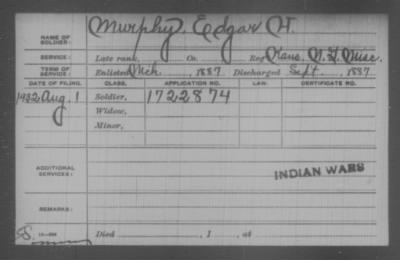 NAME OF SOLDIER: Murphy, Edgar H.
SERVICE: Late rank, Co. Reg Trans. Misc.
TERM OF SERVICE: Enlisted Mch , 1887 Discharged Sept , 1887
DATE OF FILING. CLASS. APPLICATION NO. LAW. CERTIFICATE NO.
1932 Aug. 1 Soldier, 1722874
Widow,
Minor,
ADDITIONAL SERVICES:
INDIAN WARS
REMARKS:
Died , 1 , at